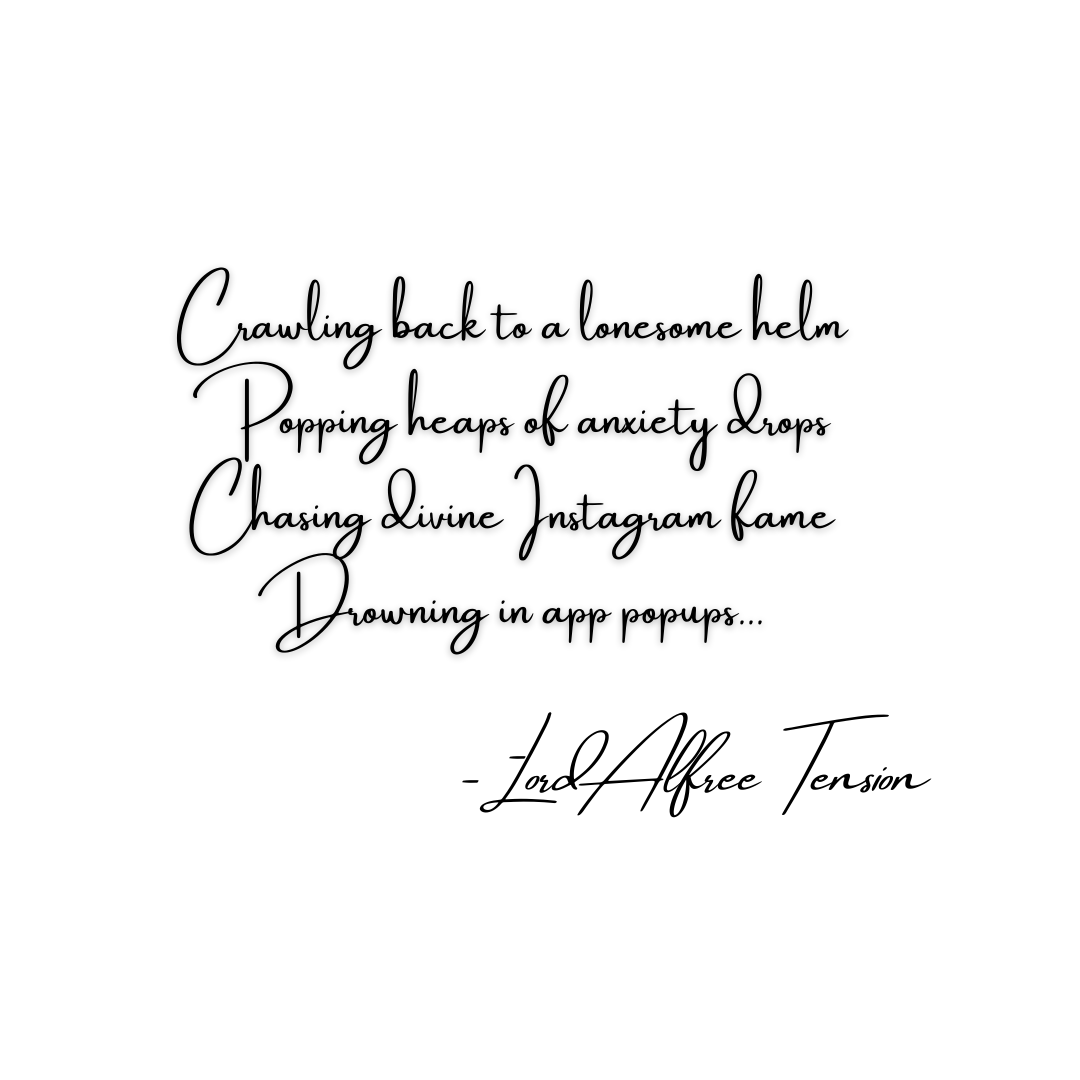 Crawling back to a lonesome helm
Popping heaps of anxiety drops
Chasing divine Instagram fame
Drowning in app popups...
- Lord Alfree Tension